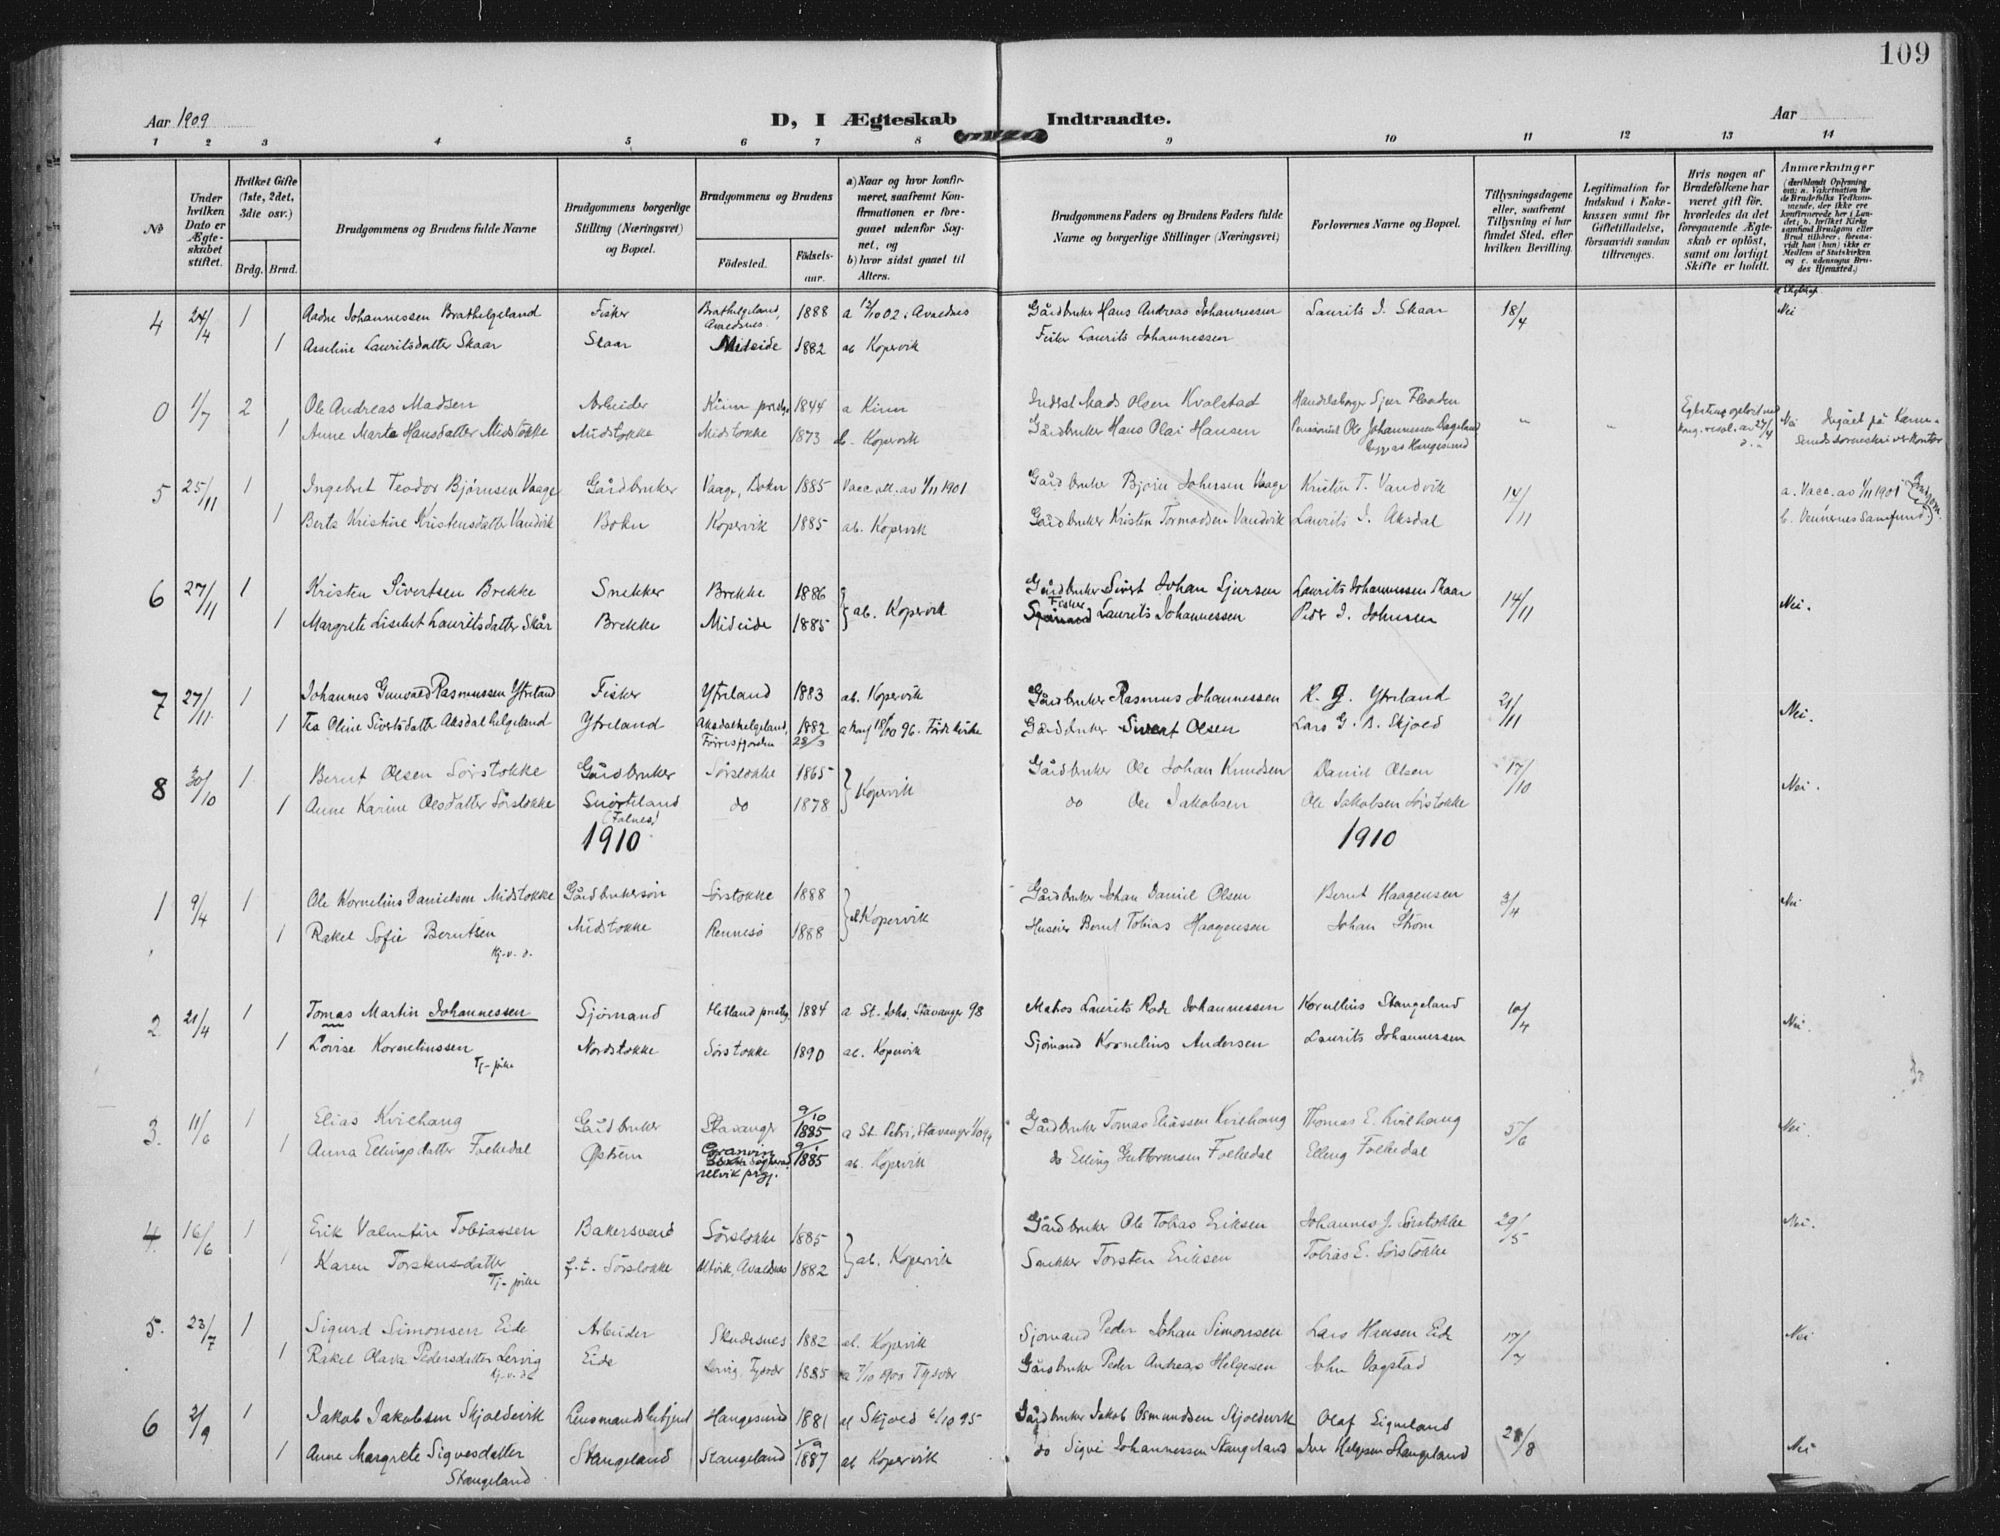 109
Aar 1909 D, I Ægteskab Indtraadte. Aar
1 2 3 4 5 6 7 8 9 10 11 12 13 14
No
Under hvilken Dato er Ægteskabet stiftet.
Hvilket Gifte (1ste, 2det, 3die osv.)
Brdg. Brud.
Brudgommens og Brudens fulde Navne
Brudgommens borgerlige Stilling (Næringsvei) og Bopæl.
Brudgommens og Brudens
Fødested. Fødselsaar.
a) Naar og hvor konfirmeret, saafremt Konfirmationen er foregaaet udenfor Sognet, og
b) hvor sidst gaaet til Alters.
Brudgommens Faders og Brudens Faders fulde Navne og borgerlige Stillinger (Næringsvei)
Forlovernes Navne og Bopæl.
Tillysningsdagene eller, saafremt Tillysning ei har fundet Sted, efter hvilken Bevilling.
Legitimation for Indskud i Enkekassen samt for Giftetilladelse, forsaavidt saadan tiltrænges.
Hvis nogen af Brudefolkene har været gift før, hvorledes da det foregaaende Ægteskab er opløst, samt om lovligt Skifte er holdt.
Anmærkninger
(deriblandt Oplysning om: a. Vakcination for de Brudefolks Vedkommende, der ikke ere konfirmerede her i Landet; b. hvilket Kirkesamfund Brudgom eller Brud tilhører, forsaavidt han (hun) ikke er Medlem af Statskirken og c. udensogns Brudes Hjemsted.)
4 24/4 1 Aadne Johannessen Brathelgeland Fisker Brathelgeland, Avaldsnes. 1888 a 12/10 02. Avaldsnes Gårdbruker Hans Andreas Johannessen Laurits J. Skaar 18/4 Nei
1 Asseline Lauritsdatter Skaar Skaar Mideide 1882 ab Kopervik Fisker Laurits Johannessen
0 1/7 2 Ole Andreas Madsen Arbeider Kinn prestg. 1844 a Kinn Inderst Mads Olsen Kvalstad Handelsborger Sjur Flaaden
1 Anne Marta Hansdatter Midstokke Midstokke Midstokke 1873 ab. Kopervik Gårdbruker Hans Olai Hansen Pensionist Ole Johannessen " " Nei
5 25/11 1 Ingebret Teodor Bjørnsen Vaage Gårdbruker Vaage, Bokn 1885 Vacc. att. av 1/11 1901 Gårdbruker Bjørn Johnsen Vaage Kristen T. Vandvik 14/11 a. Vacc. av 1/11 1901
1 Berta Kristine Kristensdatter Vandvik Bokn Kopervik 1885 ab. Kopervik Gårdbruker Kristen Tormodsen Vandvik Laurits J. Aksdal b. Vennernes Samfund.
6 27/11 1 Kristen Sivertsen Brekke Snekker Brekke 1886 ab. Kopervik Gårdbruker Sivert Johan Sjursen Laurits Johannessen Skaar 14/11 Nei.
1 Margrete Lisebet Lauritsdatter Skår Brekke Mideide 1885 Fisker Laurits Johannessen Peder J. Johnsen
7 27/11 1 Johannes Gunvald Rasmussen Ytreland Fisker Ytreland 1883 ab. Kopervik Gårdbruker Rasmus Johannessen R. J. Ytreland 21/11 Nei.
1 Tea Oline Sivertsdatter Aksdalhelgeland Ytreland Aksdalhelgeland, Førresfjorden 1882 a Konf 18/10 96. Førde kirke Gårdbruker Sivert Olsen Lars G. B. Skjold
8 30/10 1 Bernt Olsen Sørstokke Gårdbruker Sørstokke 1865 Kopervik Gårdbruker Ole Johan Knudsen Daniel Olsen 17/10 Nei.
1 Anne Karine Olsdatter Sørstokke Snørteland (Falnes) do 1878 do Ole Jakobsen Ole Jakobsen Sørstokke
1910 1910
1 9/4 1 Ole Kornelius Danielsen Midstokke Gårdbrukersøn Sørstokke 1888 ab Kopervik Gårdbruker Johan Daniel Olsen Bernt Haagensen 3/4 Nei
1 Rakel Sofie Berntsen Midstokke Rennesø 1888 Huseier Bernt Tobias Haagensen Johan Strøm
Hj. v. d.
2. 21/4 1 Tomas Martin Johannessen Sjømand Hetland prestg. 1884 a St. Johs. Stavanger 98 Matros Laurits Rode Johannessen Kornelius Stangeland 10/4 Nei
1 Lovise Korneliussen Nordstokke Sørstokke 1890 ab. Kopervik Sjømand Kornelius Andersen Laurits Johannessen
Tj-pike
3. 11/6 1 Elias Kvilhaug Gårdbruker Stavanger 9/10 1885 a St. Petri, Stavanger Gårdbruker Tomas Eliassen Kvilhaug Thomas E. Kvilhaug 5/6 Nei.
1 Anna Ellingsdatter Folkedal Østrem Granvin prgj. 1885 ab. Kopervik do Elling Guttormsen Folkedal Elling Folkedal
4. 16/6 1 Erik Valentin Tobiassen Bakersvend Sørstokke 1885 ab. Kopervik Gårdbruker Ole Tobias Eriksen Johannes J. Sørstokke 29/5 Nei.
1 Karen Torstensdatter f. t. Sørstokke Utvik, Avaldsnes 1882 Snekker Torsten Eriksen Tobias E. Sørstokke
Tj-pike
5. 23/7 1 Sigurd Simonsen Eide Arbeider Skudesnes 1882 ab. Kopervik Sjømand Peder Johan Simonsen Lars Hansen Eide 17/7 Nei
1 Rakel Olava Pedersdatter Lervig Eide Lervig, Tysvær 1885 a 7/10 1900 Tysvær Gårdbruker Peder Andreas Helgesen John Vagstad
Hj. v. d.
6 2/9 1 Jakob Jakobsen Skjoldevik Lensmandsbetjent Haugesund 1881 ab Skjold 6/10 95 Gårdbruker Jakob Osmundsen Skjoldevik Olaf Liqueland 21/8 Nei
1 Anne Margrete Sigvesdatter Stangeland Stangeland Stangeland 1/9 1887 ab Kopervik do Sigve Johannessen Stangeland Iver Helgesen Stangeland